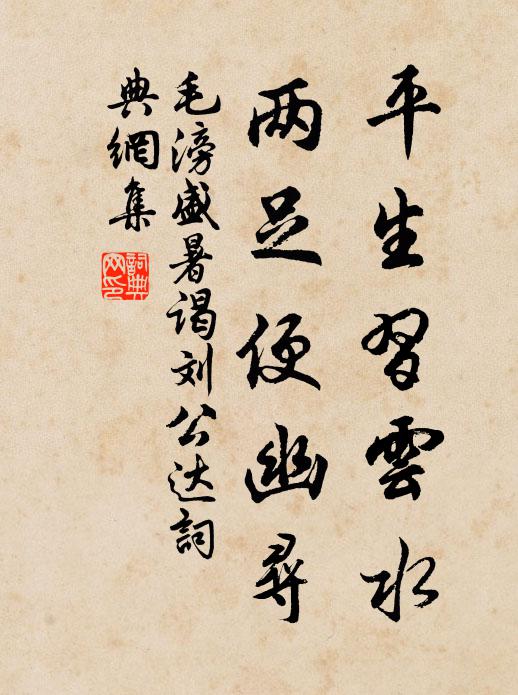 平生習雲水
两足便幽尋
毛滂盛暑谒刘公达詞
典網集
詞典网印